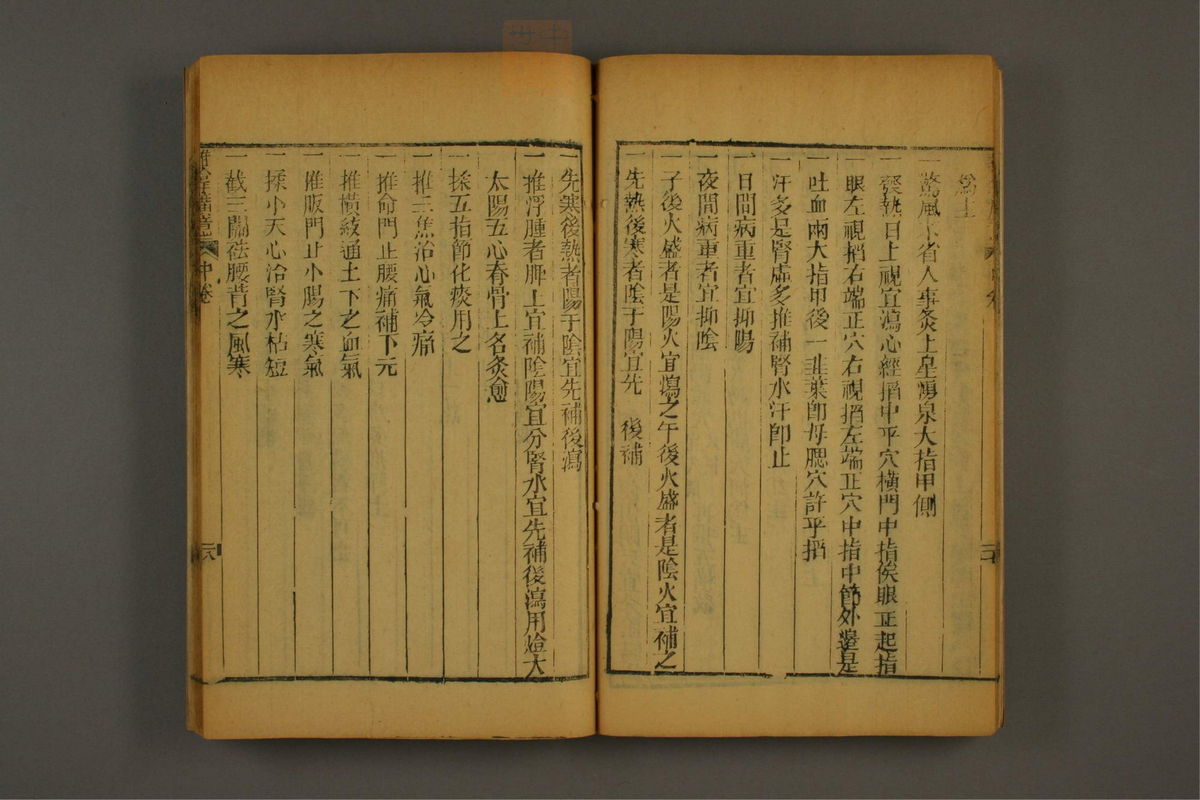 為主
一驚風不省人事灸上星湧泉大指甲側
一發熱日上視宜瀉心經掐中平穴橫門中指俟眼正起指
一眼左視掐右端正穴右視掐左端正穴中指中節外邊是
一吐血兩大指甲後一韭葉即母腮穴許平掐
一汗多是腎虛多推補腎水汗即止
一日間病重者宜抑陽
一夜間病重者宜抑陰
一子後火盛者是陽火宜瀉之午後火盛者是陰火宜補之
一先熱後寒者陰于陽宜先 後補
一先寒後熱者陽于陰宜先補後瀉
一推浮腫者脾上宜補陰陽宜分腎水宜先補後瀉用燈火
太陽五心脊骨上名灸愈
一揉五指節化痰用之
一推三焦治心氣冷痛
一推命門止腰痛補下元
一推橫紋通上下之血氣
一推版門止小腸之寒氣
一揉小天心治腎水枯短
一截三關祛腰背之風寒
中卷
二八